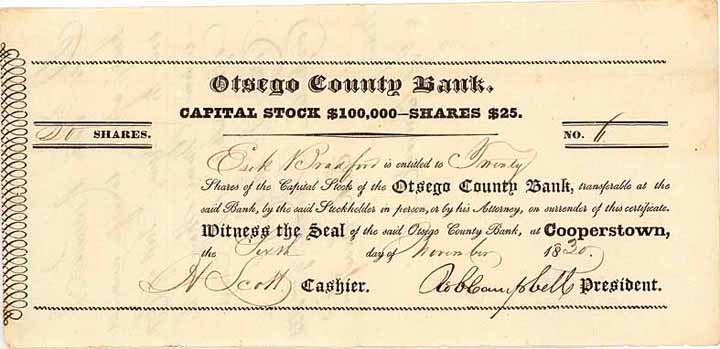 Otsego County Bank.
CAPITAL STOCK $100,000—SHARES $25.
20 SHARES. NO. 6
Esek Bradford is entitled to Twenty
Shares of the Capital Stock of the Otsego County Bank, transferable at the
said Bank, by the said Stockholder in person, or by his Attorney, on surrender of this certificate.
Witness the Seal of the said Otsego County Bank, at Cooperstown,
the Sixth day of November 1830.
H Scott Cashier. Rob Campbell President.